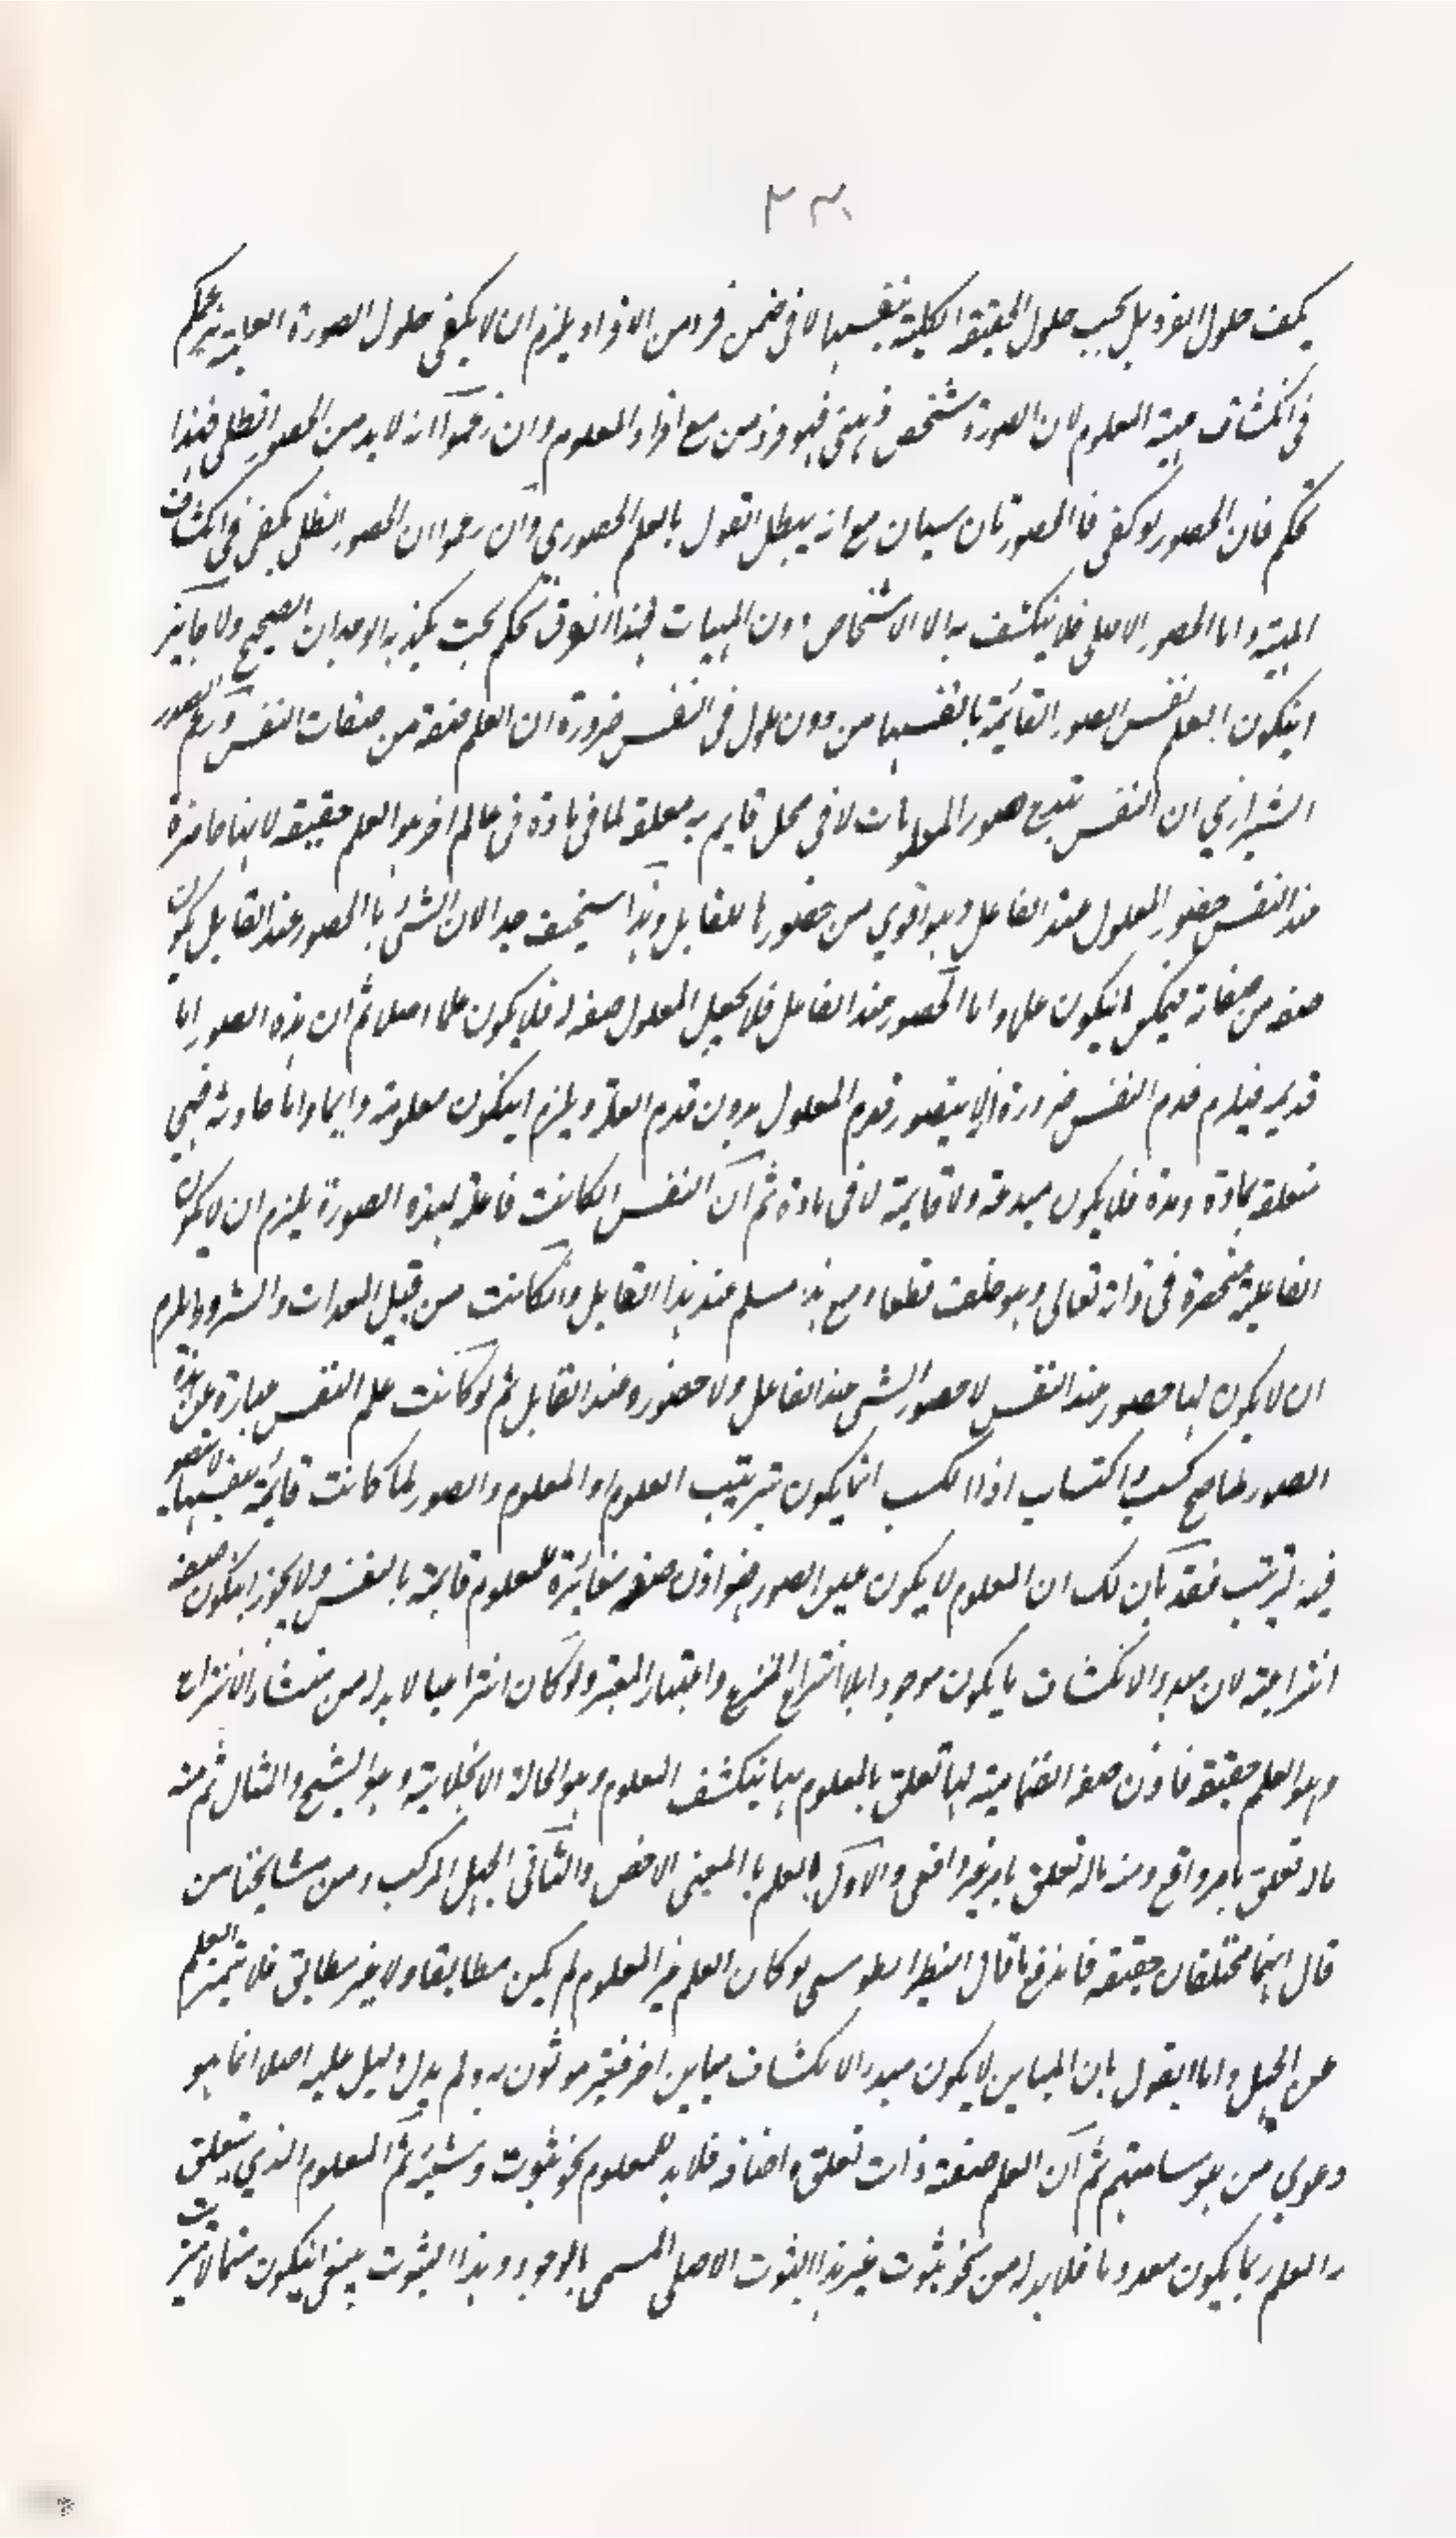 ٣٣
يكف حلول الفرد بل يجب حلول الحقيقة الكلية بنفسها لا في ضمن فرد من الافراد ويلزم ان لا يكفي حلول الصورة العلمية
في انكشاف مهية المعلوم لان الصورة شخص ذهني فهو فرد من مع افراد المعلوم وان زعموا انه لا بد من الحصول الظلي فهذا
تحكم فان الحصور لو كفى فالحصورتان سيان مع انه يبطل القول بالعلم الحضوري وان زعموا ان الحصور الظلي يكفي في انكشاف
المهية واما الحصور الاصلي فلا ينكشف به الا الاشخاص دون المهيات فهذا الفرق تحكم بحت يكذبه الوجدان الصحيح ولا جائز
ان يكون العلم نفس الصور القائمة بانفسها من دون حلول في النفس ضرورة ان العلم صفة من صفات النفس وزعم الصدر
الشيرازي ان النفس تبدع صور المعلومات لا في محل قايم به معلقة لا في مادة في عالم اخر هو العلم حقيقة لانها حاضرة
عند النفس حضور المعلول عند الفاعل وهو اقوي من حضورها للقابل وهذا سخيف جدا لان الشئ بالحصور عند القابل يكون
صفة من صفاته فيمكن ان يكون علما واما الحصور عند الفاعل فلا يجعل المعلول صفة له فلا يكون علما اصلا ثم ان هذه الصور اما
قديمة فيلزم قدم النفس ضرورة انه لا يتصور قدم المعلول بدون قدم العلة ويلزم ان يكون معلومة دايما واما حادثة فهي
متعلقة بمادة ومدة فلا يكون مبدعة ولا قايمة لا في مادة ثم ان النفس ان كانت فاعلة لهذه الصورة يلزم ان لا يكون
الفاعلية منحصرة في ذاته تعالى وهو خلف قطعا ومع هذا مسلم عند هذا القايل وان كانت من قبيل المعدات والشروط يلزم
ان لا يكون لها حصور عند النفس لا حصور الشئ عند الفاعل ولا حضوره عند القابل ثم لو كانت علم النفس عبارة عن هذه
الصور لما صح كسب واكتساب اذ الكسب انما يكون بترتيب العلوم او المعلوم والصور لما كانت قائمة بنفسها لا يتصور
فيه ترتيب فقد بان لك ان العلوم لا يكون عين الصور فهو اذن صفة مغائرة للمعلوم قايمة بالنفس ولا يجوز ان يكون صفة
انتزاعية لان مبدء الانكشاف ما يكون موجودا بلا انتزاع المنتزع واعتبار المعتبر ولو كان انتزاعيا لا بد له من منشاء الانتزاع
وهو العلم حقيقة فاذن صفة انضمامية لها تعلق بالمعلوم بها ينكشف المعلوم وهو الحالة الانجلائية وهو الشبح والمثال ثم منه
ما له تعلق بامر واقع ومنه ما له تعلق بامر غير واقعي والاول العلم بالمعنى الاخص والثاني الجهل المركب ومن مشايخنا من
قال انهما مختلفان حقيقة فاندفع ما قال الطوسي لو كان العلم غير المعلوم لم يكن مطابقا ولا غير مطابق فلا يتميز العلم
عن الجهل واما القول بان المباين لا يكون مبدء الانكشاف مباين اخر فغير موثوق به ولم يدل دليل عليه اصلا انما هو
دعوي من هوساتهم ثم ان العلم صفة ذات تعلق واضافة فلا بد للمعلوم نحو ثبوت وشيئية ثم المعلوم الذي يتعلق
به العلم ربما يكون معدوما فلا بد له من نحو ثبوت غير هذا الثبوت الاصلي المسمى بالوجود وهذا الثبوت ينبغي ان يكون